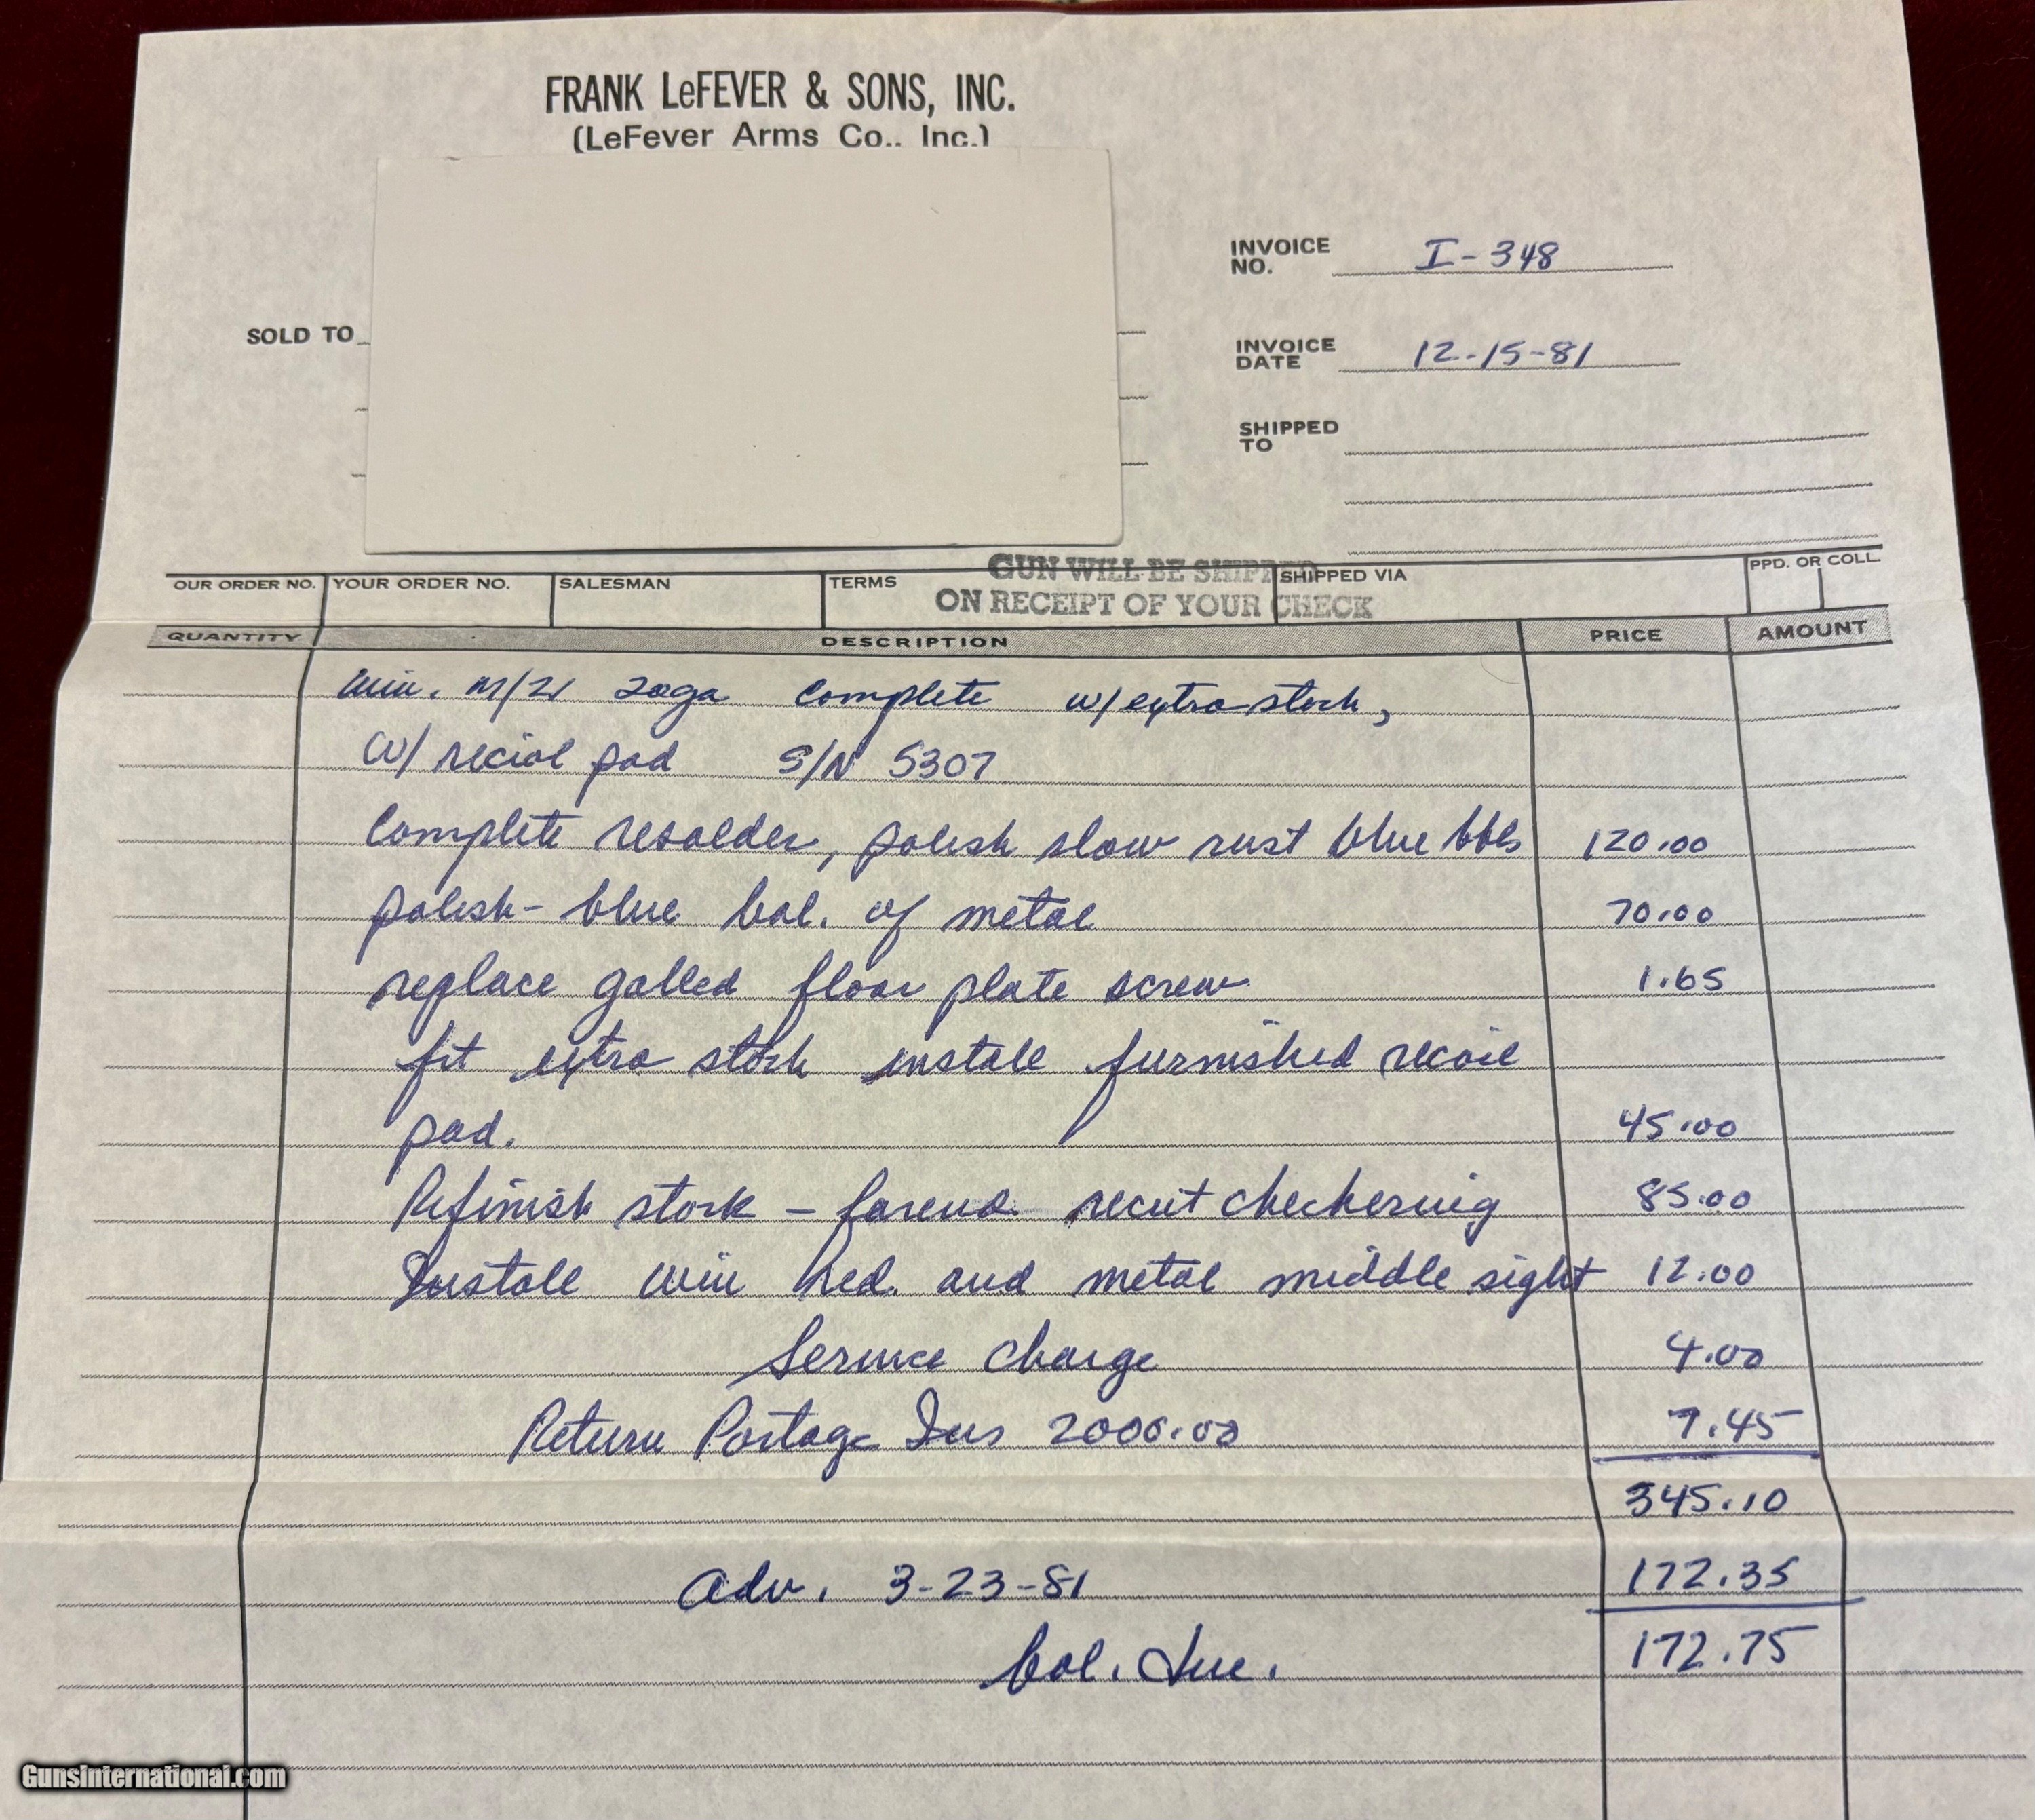 FRANK LeFEVER & SONS, INC.
(LeFever Arms Co., Inc.)
INVOICE NO. I-348
SOLD TO
INVOICE DATE 12-15-81
SHIPPED TO
GUN WILL BE SHIPPED
ON RECEIPT OF YOUR CHECK
OUR ORDER NO. YOUR ORDER NO. SALESMAN TERMS SHIPPED VIA PPD. OR COLL.
QUANTITY DESCRIPTION PRICE AMOUNT
Win. M/21 20ga complete w/ extra stock,
w/ recoil pad S/N 5307
Complete resolder, polish slow rust blue bbls 120.00
polish - blue bal. of metal 70.00
replace galled floor plate screw 1.65
fit extra stock install furnished recoil
pad. 45.00
Refinish stock - forend. recut checkering 85.00
Install win red. and metal middle sight 12.00
Service charge 4.00
Return Postage Ins 2000.00 7.45
345.10
adv. 3-23-81 172.35
bal. due. 172.75
GunsInternational.com